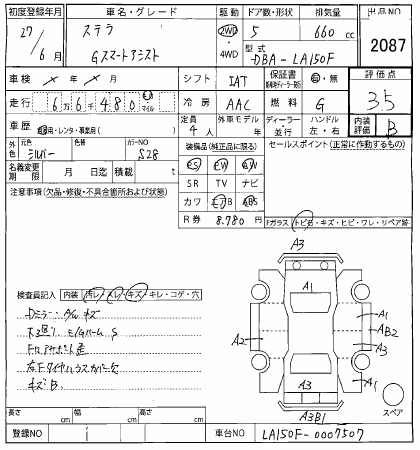 初度登録年月 車名・グレード 駆動 ドア数・形状 排気量 出品NO
27/6月 ステラ Gスマートアシスト 2WD・4WD 5 660cc 2087
型式 DBA-LA150F
車検 年 月 シフト IAT 保証書 有・無 評価点 3.5
走行 6万6千480 マイル 冷房 AAC 燃料 G
車歴 自家用・レンタ・事業用( ) 定員 4人 外車モデル 年 ディーラー・並行 ハンドル 左・右 内装評価 B
外色 元色 シルバー 色替 カラーNO S28 装備品(純正品に限る) セールスポイント(正常に作動するもの)
名義変更期限 月 日迄 積載 t PS PW AW
注意事項(欠品・修復・不具合箇所および状態) SR TV ナビ
カワ エアB ABS
R券 8.780円 Fガラス トビ石・キズ・ヒビ・ワレ・リペア跡
A3
A1
検査員記入 内装 汚レ・スレ・キズ・キレ・コゲ・穴
Dミラー:A/キズ
A1
A2 AB2
A3
左Fタイヤハウスカバー欠
キズB.
A1 A3 A1
A3B1
スペア
長さ cm 幅 cm 高さ cm
登録NO 車台NO LA150F-0007507